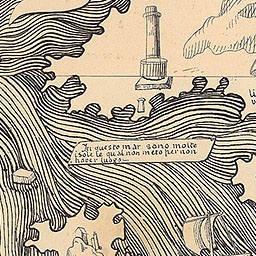 In questo mar sono molte
isole le qual non meto per non
haver luogo